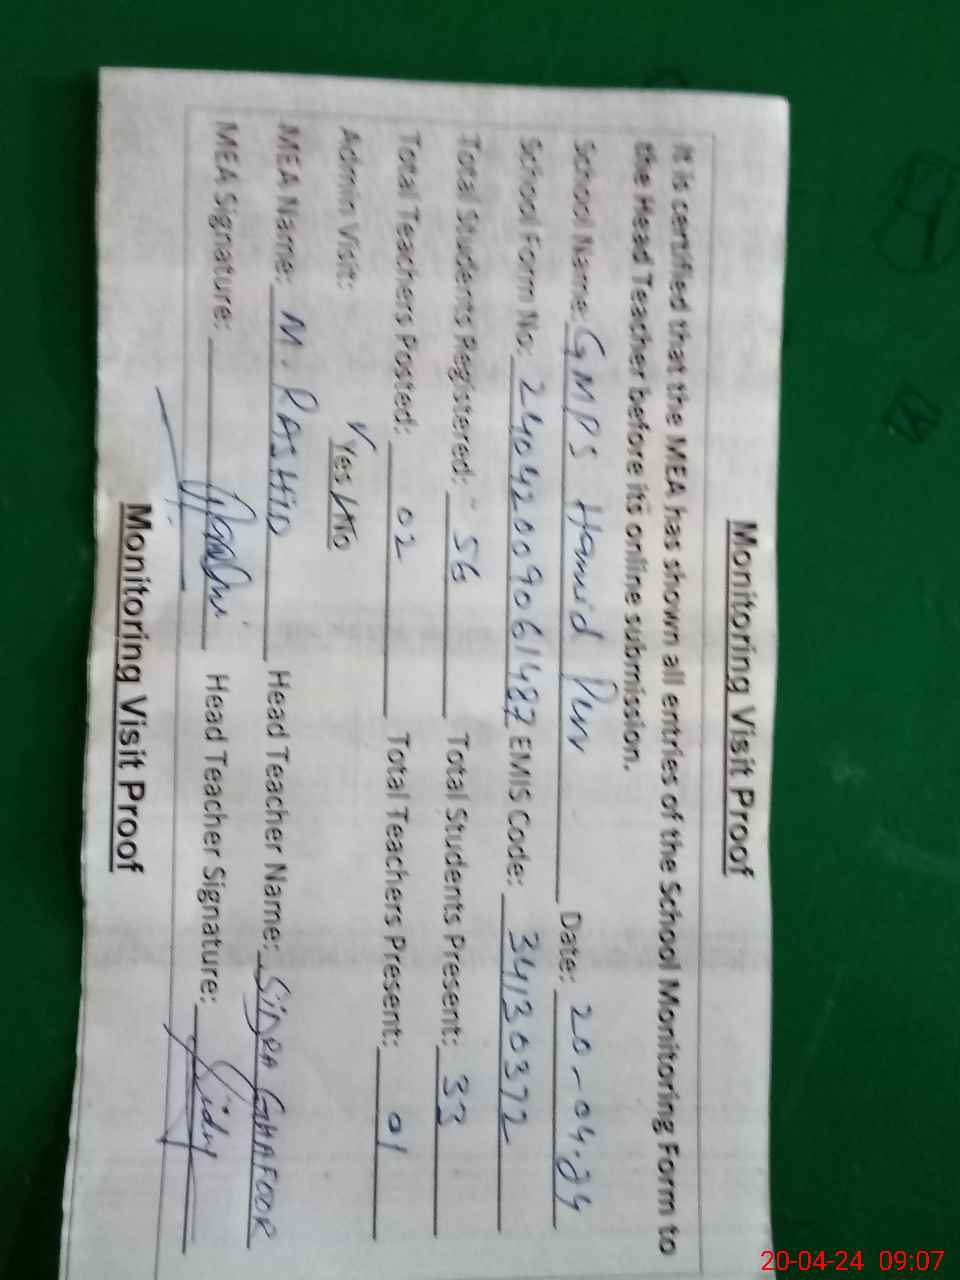 Monitoring Visit Proof
It is certified that the MEA has shown all entries of the School Monitoring Form to
the Head Teacher before its online submission.
School Name: GMPS Hamid Date: 20-04-24
School Form No: 24042009061487 EMIS Code: 34130372
Total Students Registered: 56 Total Students Present: 33
Total Teachers Posted: 02 Total Teachers Present: 01
Admin Visit: ✓Yes/No
MEA Name: M. RASHID Head Teacher Name: SIDRA GHAFOOR
MEA Signature: Head Teacher Signature: Sidra
Monitoring Visit Proof
20-04-24 09:07